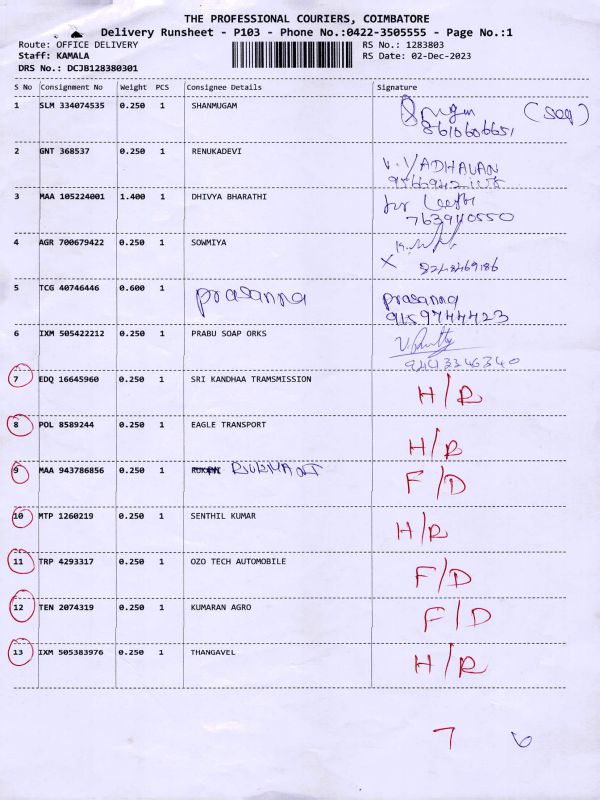 THE PROFESSIONAL COURIERS, COIMBATORE
Delivery Runsheet - P103 - Phone No.:0422-3505555 - Page No.:1
Route: OFFICE DELIVERY RS No.: 1283803
Staff: KAMALA RS Date: 02-Dec-2023
DRS No.: DCJB128380301
S No Consignment No Weight PCS Consignee Details Signature
1 SLM 334074535 0.250 1 SHANMUGAM
8610606651
2 GNT 368537 0.250 1 RENUKADEVI
3 MAA 105224001 1.400 1 DHIVYA BHARATHI
7639410550
4 AGR 700679422 0.250 1 SOWMIYA
X
5 TCG 40746446 0.600 1 prasanna prasanna
9159744423
6 IXM 505422212 0.250 1 PRABU SOAP ORKS
9443346340
7 EDQ 16645960 0.250 1 SRI KANDHAA TRAMSMISSION H/R
8 POL 8589244 0.250 1 EAGLE TRANSPORT H/R
9 MAA 943786856 0.250 1 F/D
10 MTP 1260219 0.250 1 SENTHIL KUMAR H/R
11 TRP 4293317 0.250 1 OZO TECH AUTOMOBILE F/D
12 TEN 2074319 0.250 1 KUMARAN AGRO F/D
13 IXM 505383976 0.250 1 THANGAVEL H/R
7 6